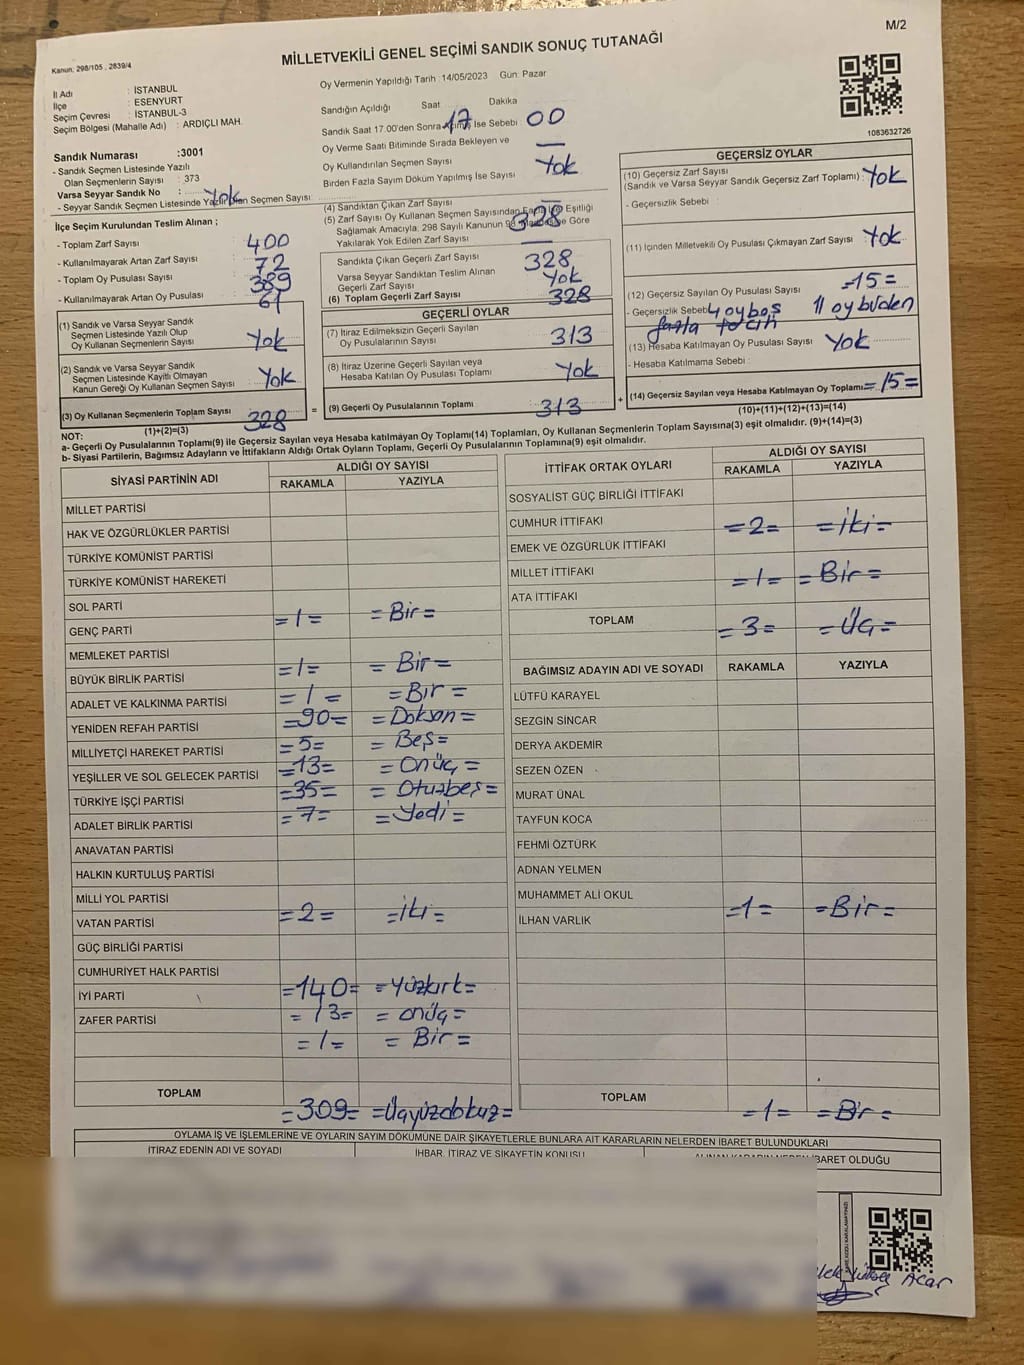 M/2
MİLLETVEKİLİ GENEL SEÇİMİ SANDIK SONUÇ TUTANAĞI
Kanun: 298/105 , 2839/4
İl Adı : İSTANBUL
İlçe : ESENYURT
Seçim Çevresi : İSTANBUL-3
Seçim Bölgesi (Mahalle Adı) : ARDIÇLI MAH.
Sandık Numarası :3001
- Sandık Seçmen Listesinde Yazılı
Olan Seçmenlerin Sayısı : 373
Varsa Seyyar Sandık No :
- Seyyar Sandık Seçmen Listesinde Yazılı Olan Seçmen Sayısı : Yok
İlçe Seçim Kurulundan Teslim Alınan ;
- Toplam Zarf Sayısı : 400
- Kullanılmayarak Artan Zarf Sayısı : 72
- Toplam Oy Pusulası Sayısı : 389
- Kullanılmayarak Artan Oy Pusulası : 61
(1) Sandık ve Varsa Seyyar Sandık
Seçmen Listesinde Yazılı Olup
Oy Kullanan Seçmenlerin Sayısı Yok
(2) Sandık ve Varsa Seyyar Sandık
Seçmen Listesinde Kayıtlı Olmayan
Kanun Gereği Oy Kullanan Seçmen Sayısı Yok
(3) Oy Kullanan Seçmenlerin Toplam Sayısı 328
(1)+(2)=(3)
Oy Vermenin Yapıldığı Tarih :14/05/2023 Gün: Pazar
Sandığın Açıldığı Saat Dakika
17 00
Sandık Saat 17.00'den Sonra Açılmış İse Sebebi
Oy Verme Saati Bitiminde Sırada Bekleyen ve
Oy Kullandırılan Seçmen Sayısı —
Birden Fazla Sayım Döküm Yapılmış İse Sayısı Yok
(4) Sandıktan Çıkan Zarf Sayısı 328
(5) Zarf Sayısı Oy Kullanan Seçmen Sayısından Fazla İse Eşitliği
Sağlamak Amacıyla, 298 Sayılı Kanunun 98. Maddesine Göre
Yakılarak Yok Edilen Zarf Sayısı —
Sandıkta Çıkan Geçerli Zarf Sayısı 328
Varsa Seyyar Sandıktan Teslim Alınan
Geçerli Zarf Sayısı Yok
(6) Toplam Geçerli Zarf Sayısı 328
GEÇERLİ OYLAR
(7) İtiraz Edilmeksizin Geçerli Sayılan
Oy Pusulalarının Sayısı 313
(8) İtiraz Üzerine Geçerli Sayılan veya
Hesaba Katılan Oy Pusulası Toplamı Yok
= (9) Geçerli Oy Pusulalarının Toplamı 313 +
1083632726
GEÇERSİZ OYLAR
(10) Geçersiz Zarf Sayısı
(Sandık ve Varsa Seyyar Sandık Geçersiz Zarf Toplamı) : Yok
- Geçersizlik Sebebi :
(11) İçinden Milletvekili Oy Pusulası Çıkmayan Zarf Sayısı : Yok
(12) Geçersiz Sayılan Oy Pusulası Sayısı =15=
- Geçersizlik Sebebi 4 oy boş 11 oy birden
fazla tercih
(13) Hesaba Katılmayan Oy Pusulası Sayısı Yok
- Hesaba Katılmama Sebebi :
(14) Geçersiz Sayılan veya Hesaba Katılmayan Oy Toplamı =15=
(10)+(11)+(12)+(13)=(14)
NOT:
a- Geçerli Oy Pusulalarının Toplamı(9) ile Geçersiz Sayılan veya Hesaba katılmayan Oy Toplamı(14) Toplamları, Oy Kullanan Seçmenlerin Toplam Sayısına(3) eşit olmalıdır. (9)+(14)=(3)
b- Siyasi Partilerin, Bağımsız Adayların ve İttifakların Aldığı Ortak Oyların Toplamı, Geçerli Oy Pusulalarının Toplamına(9) eşit olmalıdır.
SİYASİ PARTİNİN ADI ALDIĞI OY SAYISI
RAKAMLA YAZIYLA
MİLLET PARTİSİ
HAK VE ÖZGÜRLÜKLER PARTİSİ
TÜRKİYE KOMÜNİST PARTİSİ
TÜRKİYE KOMÜNİST HAREKETİ
SOL PARTİ
GENÇ PARTİ =1= =Bir=
MEMLEKET PARTİSİ
BÜYÜK BİRLİK PARTİSİ =1= =Bir=
ADALET VE KALKINMA PARTİSİ =1= =Bir=
YENİDEN REFAH PARTİSİ =90= =Doksan=
MİLLİYETÇİ HAREKET PARTİSİ =5= =Beş=
YEŞİLLER VE SOL GELECEK PARTİSİ =13= =Onüç=
TÜRKİYE İŞÇİ PARTİSİ =35= =Otuzbeş=
ADALET BİRLİK PARTİSİ =7= =Yedi=
ANAVATAN PARTİSİ
HALKIN KURTULUŞ PARTİSİ
MİLLİ YOL PARTİSİ
VATAN PARTİSİ =2= =İki=
GÜÇ BİRLİĞİ PARTİSİ
CUMHURİYET HALK PARTİSİ
İYİ PARTİ =140= =Yüzkırk=
ZAFER PARTİSİ =13= =onüç=
=1= =Bir=
TOPLAM =309= =Üçyüzdokuz=
İTTİFAK ORTAK OYLARI ALDIĞI OY SAYISI
RAKAMLA YAZIYLA
SOSYALİST GÜÇ BİRLİĞİ İTTİFAKI
CUMHUR İTTİFAKI =2= =İki=
EMEK VE ÖZGÜRLÜK İTTİFAKI
MİLLET İTTİFAKI =1= =Bir=
ATA İTTİFAKI
TOPLAM =3= =Üç=
BAĞIMSIZ ADAYIN ADI VE SOYADI RAKAMLA YAZIYLA
LÜTFÜ KARAYEL
SEZGİN SİNCAR
DERYA AKDEMİR
SEZEN ÖZEN
MURAT ÜNAL
TAYFUN KOCA
FEHMİ ÖZTÜRK
ADNAN YELMEN
MUHAMMET ALİ OKUL
İLHAN VARLIK =1= =Bir=
TOPLAM =1= =Bir=
OYLAMA İŞ VE İŞLEMLERİNE VE OYLARIN SAYIM DÖKÜMÜNE DAİR ŞİKAYETLERLE BUNLARA AİT KARARLARIN NELERDEN İBARET BULUNDUKLARI
İTİRAZ EDENİN ADI VE SOYADI İHBAR, İTİRAZ VE ŞİKAYETİN KONUSU İBARET OLDUĞU
Acar